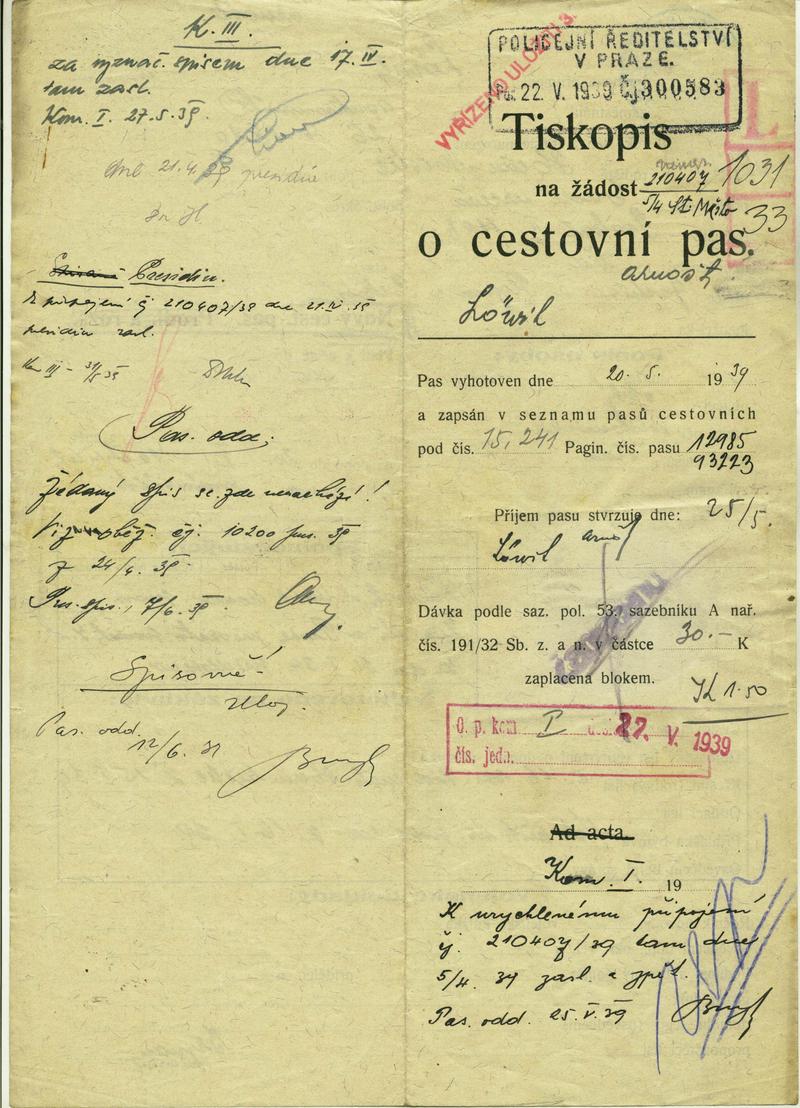 K. III.
za vyznač. spisem dne 17.IV.
tam zasl.
Kom. I. 27.5.39
dne 21.4.39 presidiu
Presidiu.
K připojení čj 210407/39 dne 21.IV.39
presidiu zasl.
Pas. odd.
Žádaný spis se zde nenachází!
Viz oběž. čj. 10200 pres. 39
z 24/4. 39.
Pres. spis., 7/6. 39.
Spisovně!
Ulož.
Pas. odd.
12/6. 39
VYŘÍZENO ULOŽITI
POLICEJNÍ ŘEDITELSTVÍ
V PRAZE.
22. V. 1939 Čj 300583
Tiskopis
na žádost 210407 1031
5/4 St. Město 33
o cestovní pas.
Arnošt
Löwil
Pas vyhotoven dne 20. 5. 1939
a zapsán v seznamu pasů cestovních
pod čís. 15,241 Pagin. čís. pasu 12985
93223
Příjem pasu stvrzuje dne: 25/5.
Löwil Arnošt
Dávka podle saz. pol. 53. sazebníku A nař.
čís. 191/32 Sb. z. a n. v částce 30.– K
zaplacena blokem.
K 1.50
O. p. kom I 27. V. 1939
čís. jedn.
Ad acta.
Kom. I. 19
K urychlenému připojení
čj. 210407/39 tam dne
5/4. 39 zasl. a zpět.
Pas. odd. 25.V.39